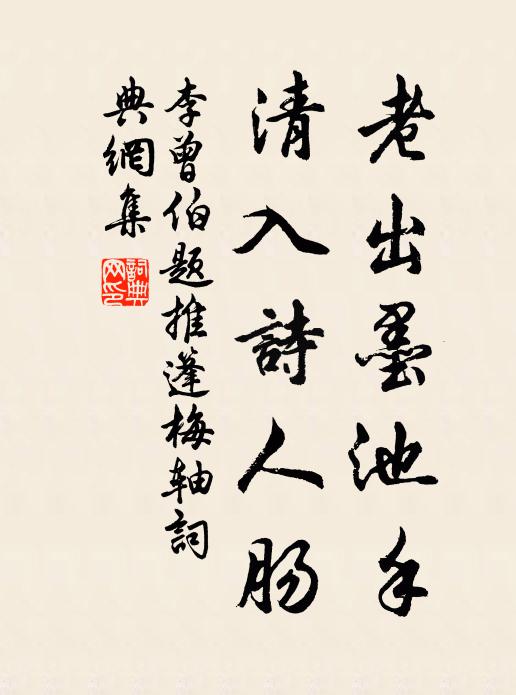 老出墨池手
清入詩人肠
李曾伯題推蓬梅軸詞
典網集
詞典
网印